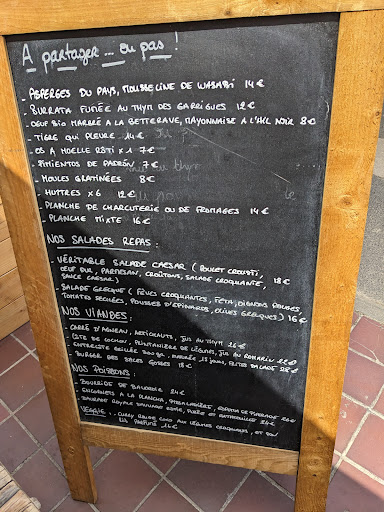 A partager ... ou pas !
- Asperges du pays, mousseline de wasabi 14€
- Burrata fumée au thym des garrigues 12€
- Oeuf bio marbré à la betterave, mayonnaise à l'ail noir 8€
- Tigre qui pleure 14€
- Os à moelle rôti x1 7€
- Pimientos de padrón 7€
- Moules gratinées 8€
- Huîtres x6 12€
- Planche de charcuterie ou de fromages 14€
- Planche mixte 16€
Nos salades repas :
- Véritable salade caesar (poulet crousti,
oeuf dur, parmesan, croûtons, salade croquante, 18€
sauce caesar)
- Salade grecque (fèves croquantes, feta, oignons rouges,
tomates séchées, pousses d'épinards, olives grecques) 16€
Nos viandes :
- Carré d'agneau, artichauts, jus au thym 26€
- Côte de cochon, printanière de légumes, jus au romarin 22€
- Entrecôte grillée 300gr, maturée 15 jours, frites salade 28€
- Burger des sales gosses 18€
Nos poissons :
- Bourride de baudroie 24€
- Encornets à la plancha,
- royale
Veggie : curry rouge coco aux légumes croquants, et son
riz parfumé 16€